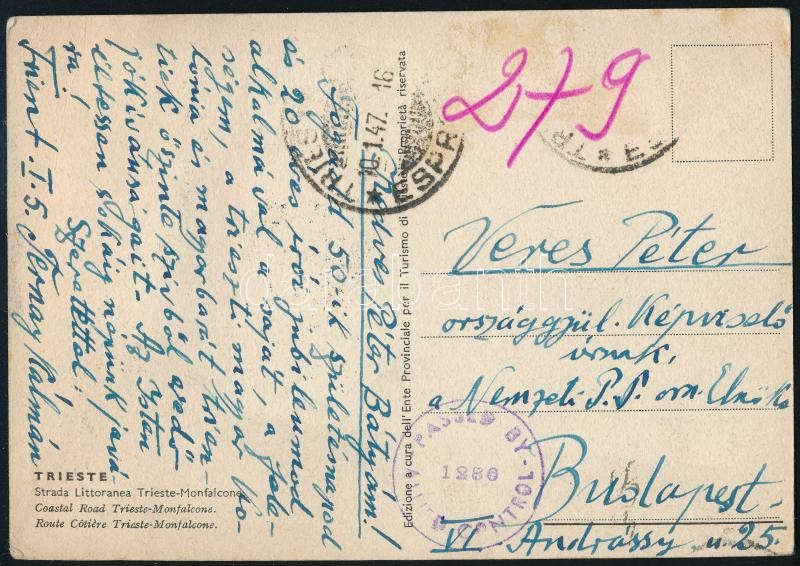 Kedves Péter Bátyám!
Fogadd 50-ik születésnapod
és 20 éves írói jubileumod
alkalmával a saját, a fele-
ségem, a trieszti magyar ko-
lónia és magyarbarát trien-
tiek őszinte szívből eredő
jókívánságait. Az Isten
éltessen sokáig népünk javá-
ra!
Szeretettel:
Trient. I. 5. Ternay Kálmán
TRIESTE
Strada Littoranea Trieste-Monfalcone.
Coastal Road Trieste-Monfalcone.
Route Côtière Trieste-Monfalcone.
Edizione a cura dell'Ente Provinciale per il Turismo di Trieste - Proprietà riservata
10.1.47. 16
279
Veres Péter
országgyül. Képviselő
úrnak,
a Nemzeti P. P. orsz. Elnöke
Budapest.
VI. Andrássy u. 25.
PASSED BY
1286
CONTROL
darabanth